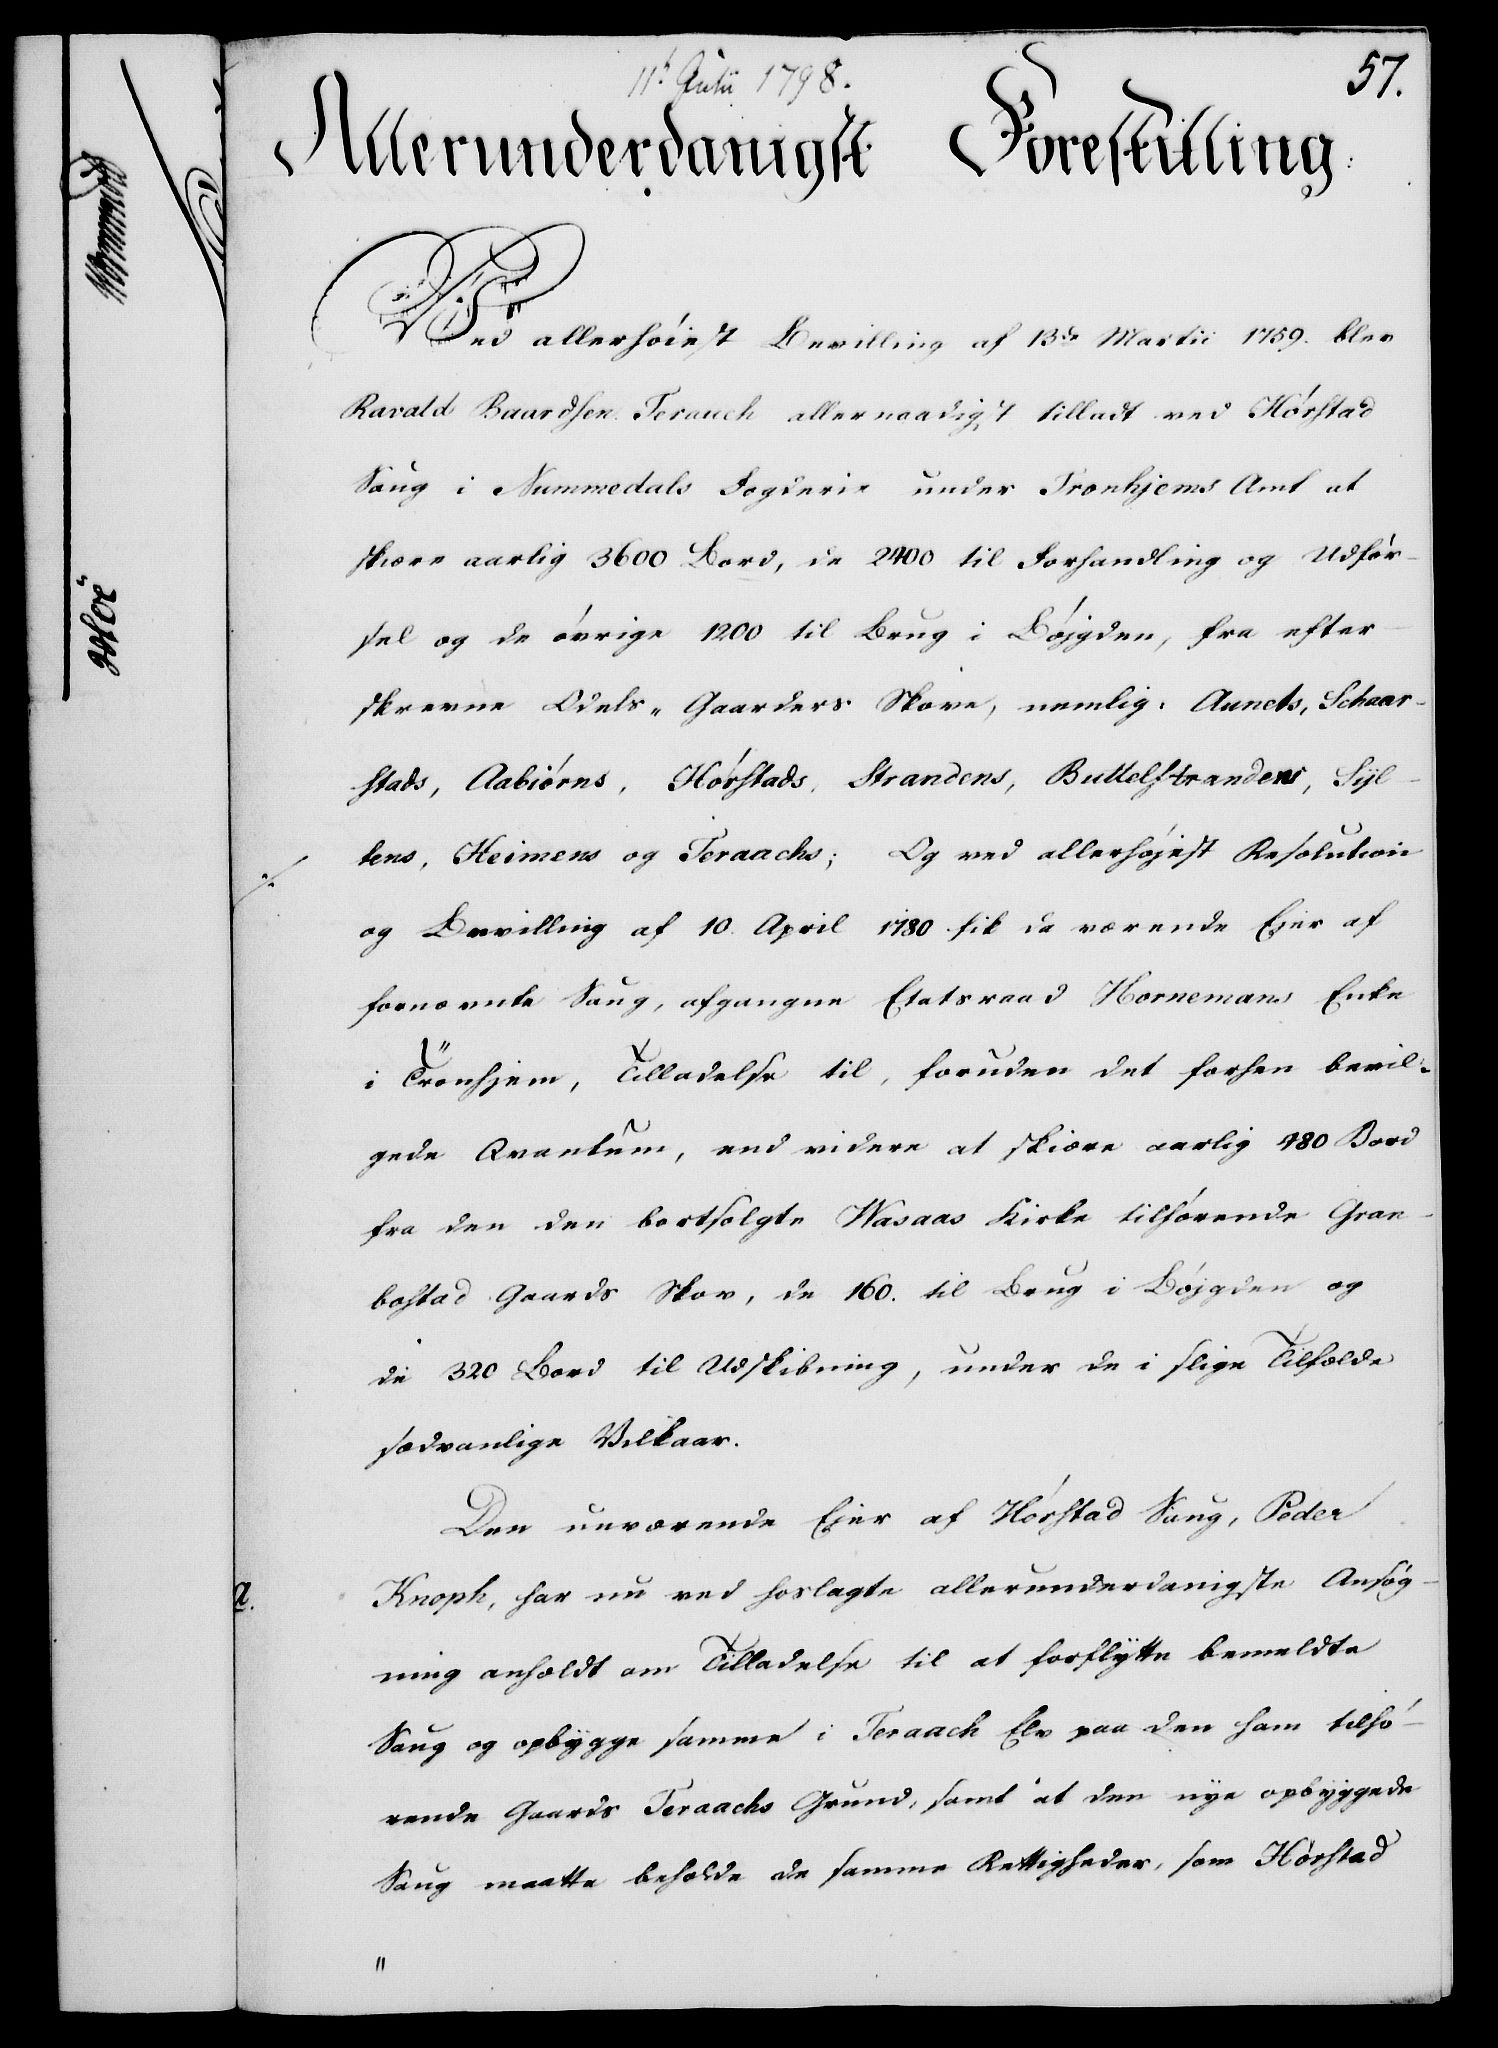 11t Julii 1798.
57.
Allerunderdanigst Forestilling.
Ved allerhöiest Bevilling af 13de Martii 1759. blev
Ravald Baardsen Terauch allernaadigst tilladt ved Hörstad
Saug i Nummedals Fogderie under Tronhjems Amt at
skiere aarlig 3600 Bord, de 2400 til Forhandling og Udför-
sel og de övrige 1200 til Brug i Böjgden, fra efter
skrevne Odels- Gaarders Skove, nemlig: Aunets, Schaar-
stads, Aabiörns, Hörstads, Strandens, Buttelstrandens, Syl-
tens, Heimens og Teraachs; Og ved allerhöjest Resolution
og Bevilling af 10. April 1780 fik da værende Ejer af
fornævnte Saug, afgangne Etatsraad Hornemans Enke
i Tronhjem, Tilladelse til, foruden det forhen bevil-
gede Qvantum, end videre at skiere aarlig 480 Bord
fra den den bortsolgte Wasaas Kirke tilhörende Gran-
bostad Gaards Skov, de 160. til Brug i Böjgden og
de 320 Bord til Udskibning, under de i slige Tilfælde
sædvanlige Vilkaar.
Den nuværende Ejer af Hörstad Saug, Peder
a.
Knoph, har nu ved hoslagte allerunderdanigste Ansög-
ning anholdt om Tilladelse til at forflytte bemeldte
Saug og opbygge samme i Teraach Elv paa den ham tilhö-
rende Gaards Teraachs Grund, samt at den nye opbyggede
Saug maatte beholde de samme Rettigheder, som Hörstad
"